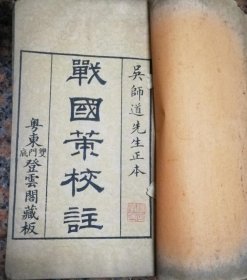 吳師道先生正本
戰國策校註
粵東雙門底登雲閣藏板